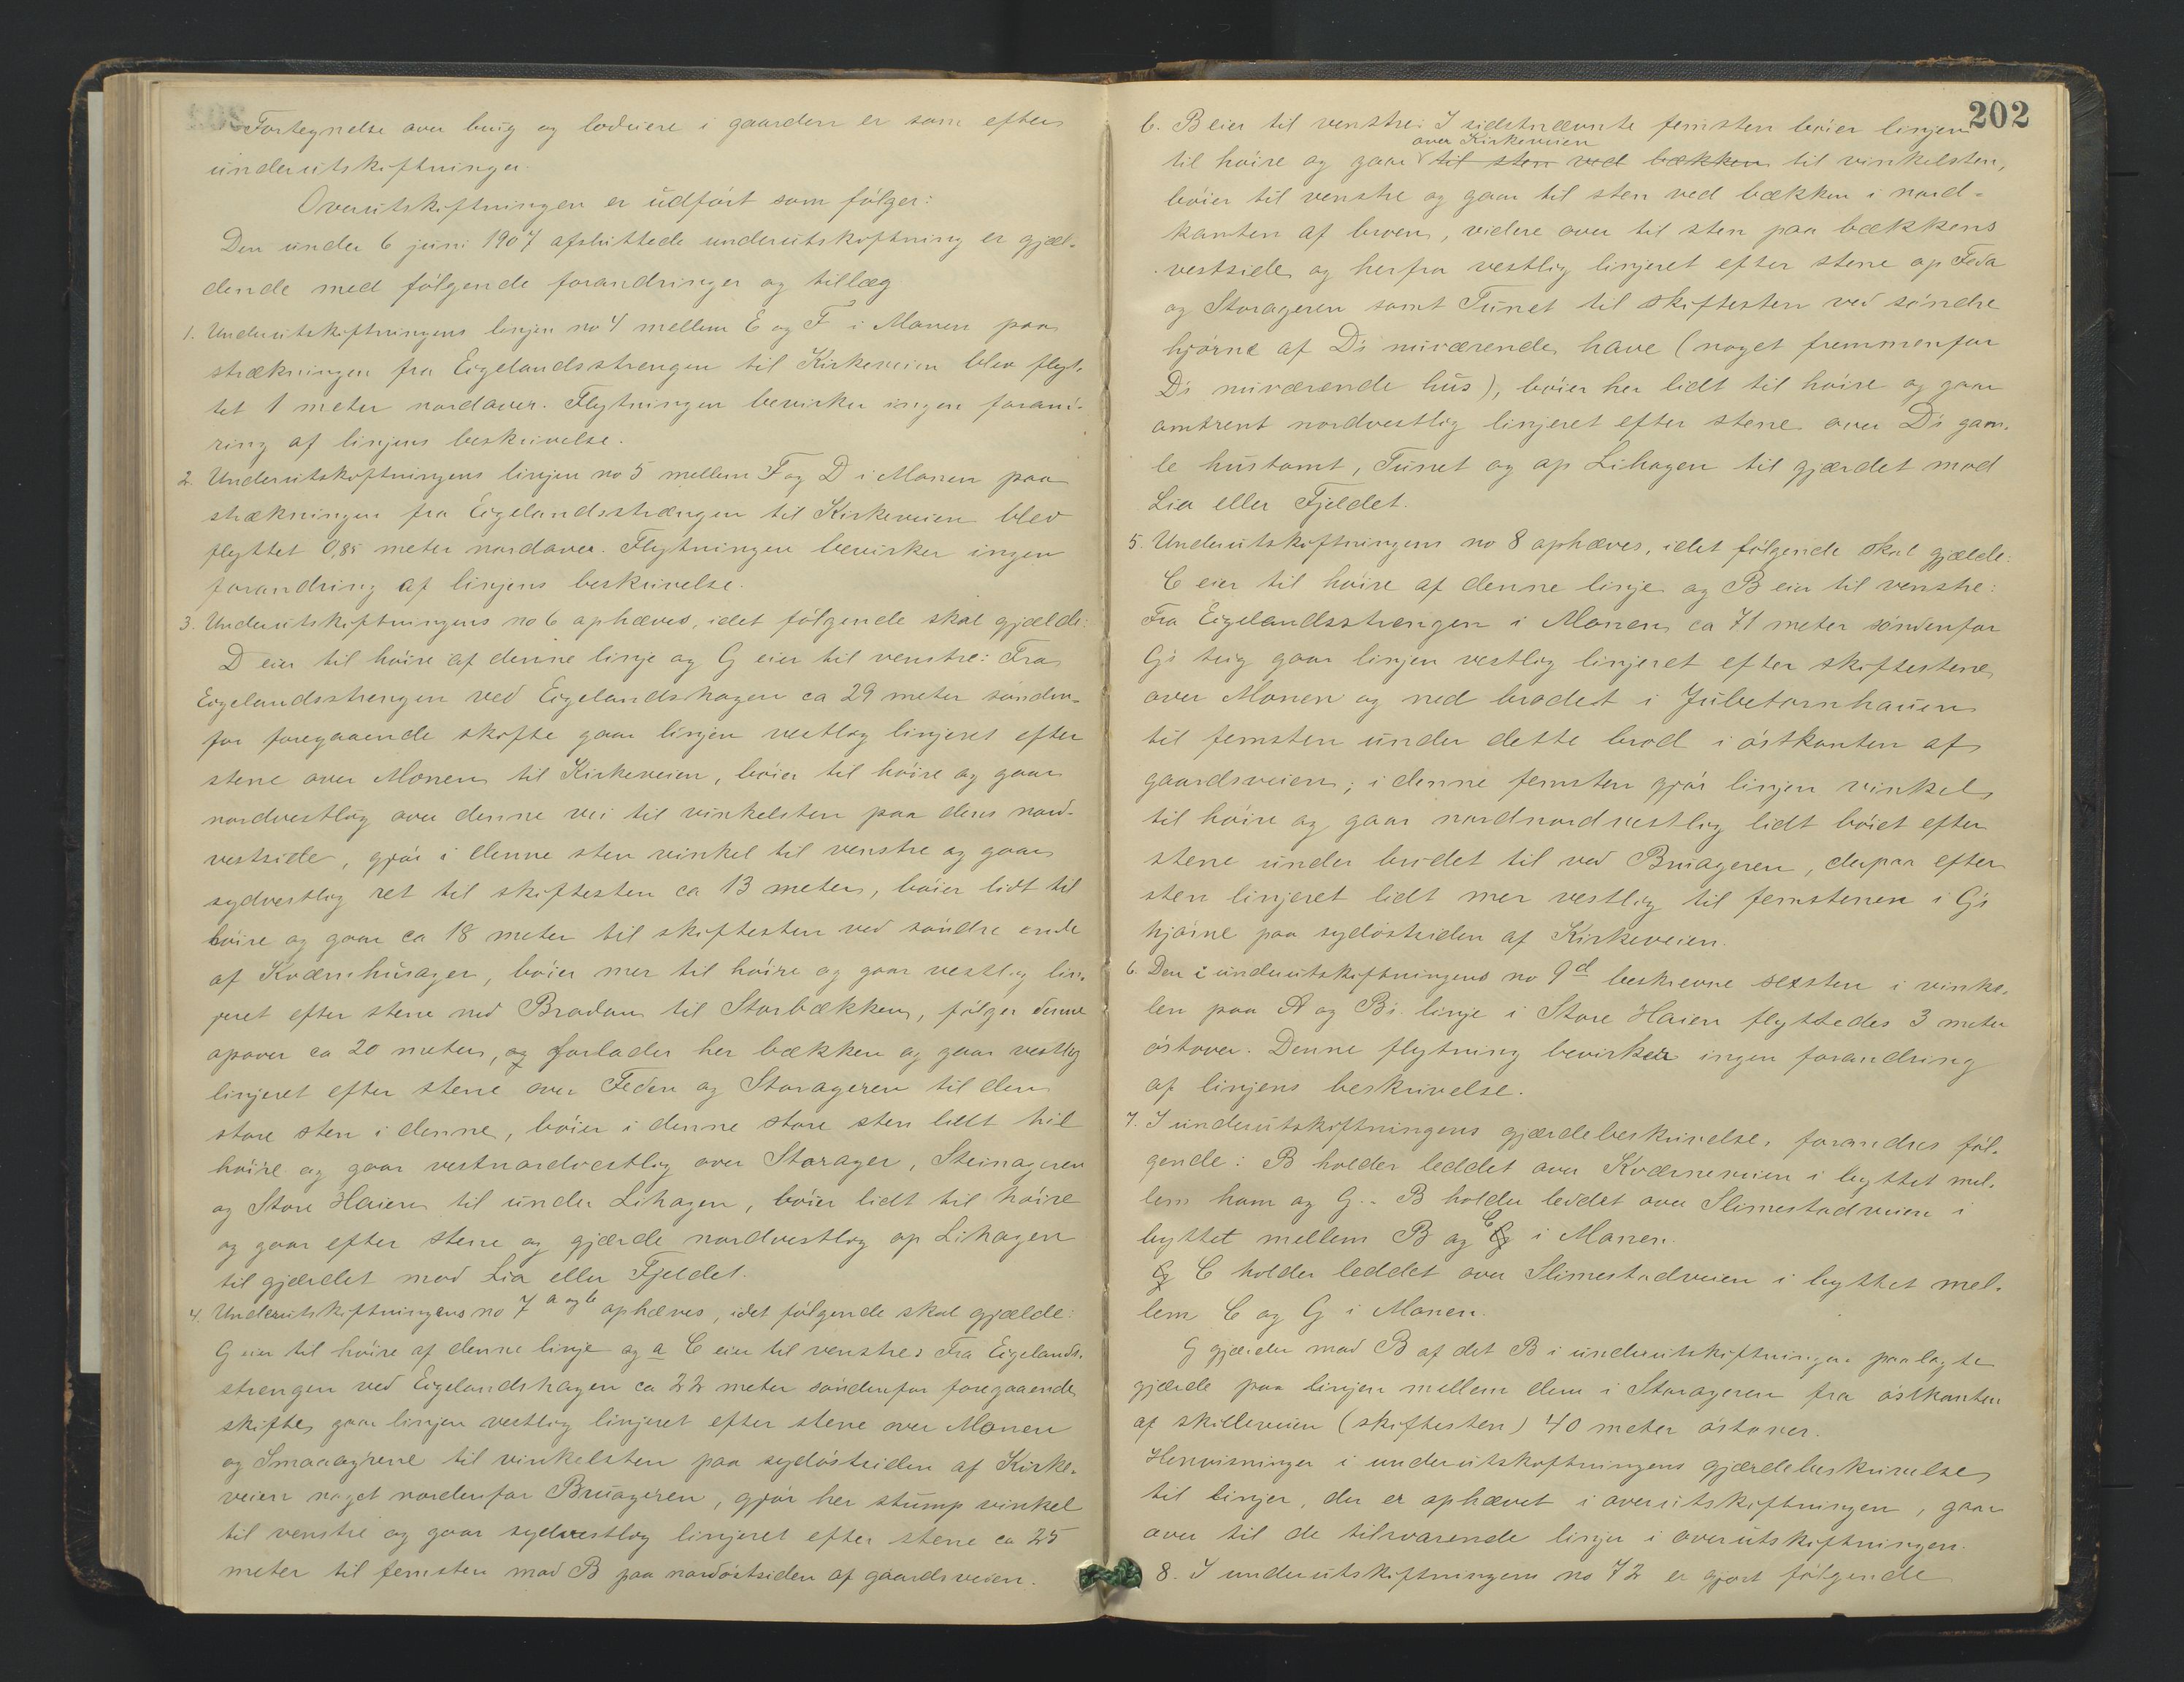 Fortegnelse over brug og lodeiere i gaarden er som efter
underutskiftningen.
Overutskiftningen er udført som følger:
Den under 6 juni 1907 afsluttede underutskiftning er gjæl-
dende med følgende forandringer og tillæg
1. Underutskiftningens linjen no 4 mellem E og F i Monen paa
strækningen fra Eigelandsstrengen til Kirkeveien blev flyt-
tet 1 meter nordover. Flytningen bevirker ingen forand-
ring af linjens beskrivelse.
2. Underutskiftningens linjen no 5 mellem F og D i Monen paa
strækningen fra Eigelandsstrængen til Kirkeveien blev
flyttet 0,85 meter nordover. Flytningen bevirker ingen
forandring af linjens beskrivelse.
3. Underutskiftningens no 6 ophæves, idet følgende skal gjælde:
D eier til høire af denne linje og G eier til venstre: Fra
Eigelandsstrengen ved Eigelandshagen ca 29 meter sønden-
for foregaaende skifte gaar linjen vestlig linjeret efter
stene over Monen til Kirkeveien, bøier til høire og gaar
nordvestlig over denne vei til vinkelsten paa dens nord-
vestside, gjør i denne sten vinkel til venstre og gaar
sydvestlig ret til skiftesten ca 13 meter, bøier lidt til
høire og gaar ca 18 meter til skiftesten ved søndre ende
af Kværnhusager, bøier mer til høire og gaar vestlig lin-
jeret efter stene ned Bradan til Storbækken, følger denne
opover ca 20 meter, og forlader her bækken og gaar vestlig
linjeret efter stene over Feden og Storageren til den
store sten i denne, bøier i denne store sten lidt til
høire og gaar vestnordvestlig over Storager, Steinageren
og Store Haien til under Lihagen, bøier lidt til høire
og gaar efter stene og gjærde nordvestlig op Lihagen
til gjærdet mod Lia eller Fjeldet.
4. Underutskiftningens no 7 a og b ophæves, idet følgende skal gjælde:
G eier til høire af denne linje og a C eier til venstre: Fra Eigelands-
strengen ved Eigelandshagen ca 22 meter søndenfor foregaaende
skifte, gaar linjen vestlig linjeret efter stene over Monen
og Smaaagrene til vinkelsten paa sydøstsiden af Kirke-
veien noget nordenfor Bruageren, gjør her stump vinkel
til venstre og gaar sydvestlig linjeret efter stene ca 25
meter til femsten mod B paa nordøstsiden af gaardsveien.
202
b. B eier til venstre: I sidstnævnte femsten bøier linjen
over Kirkeveien
til høire og gaar til sten ved bækken til vinkelsten,
bøier til venstre og gaar til sten ved bækken i nord-
kanten af broen, videre over til sten paa bækkens
vestside og herfra vestlig linjeret efter stene op Feda
og Storageren samt Tunet til skiftesten ved søndre
hjørne af D's nuværende have (noget fremmenfor
D's nuværende hus), bøier her lidt til høire og gaar
omtrent nordvestlig linjeret efter stene over D's gam-
le hustomt, Tunet og op Lihagen til gjærdet mod
Lia eller Fjeldet.
5. Underutskiftningens no 8 ophæves, idet følgende skal gjælde:
C eier til høire af denne linje og B eier til venstre:
Fra Eigelandsstrengen i Monen ca 71 meter søndenfor
G's teig gaar linjen vestlig linjeret efter skiftestene
over Monen og ned bradet i Jubetornhauen
til femsten under dette brad i østkanten af
gaardsveien; i denne femsten gjør linjen vinkel
til høire og gaar nordnordvestlig lidt bøiet efter
stene under bradet til ved Bruageren, derpaa efter
sten linjeret lidt mer vestlig til femstenen i G's
hjørne paa sydøstsiden af Kirkeveien.
6. Den i underutskiftningens no 9 d beskrevne sexsten i vinke-
len paa A og B's linje i Store Haien flyttedes 3 meter
østover. Denne flytning bevirker ingen forandring
af linjens beskrivelse.
7. I underutskiftningens gjærdebeskrivelse, forandres føl-
gende: B holder leddet over Kværneveien i byttet mel-
lem ham og G. - B holder leddet over Slimestadveien i
byttet mellem B og C G i Monen.
G C holder leddet over Slimestadveien i byttet mel-
lem C og G i Monen.
G gjærder mod B af det B i underutskiftningen paalagte
gjærde paa linjen mellem dem i Storageren fra østkanten
af skilleveien (skiftesten) 40 meter østover.
Henvisninger i underutskiftningens gjærdebeskrivelse
til linjer, der er ophævet i overutskiftningen, gaar
over til de tilsvarende linjer i overutskiftningen.
8. I underutskiftningens no 72 er gjort følgende